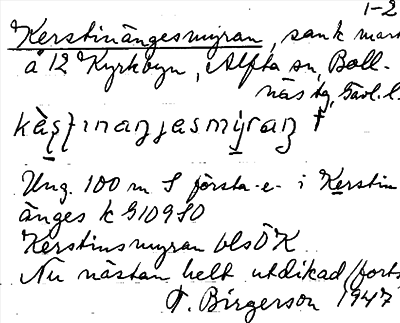 1-2
Kerstinängesmyran, sank mark
å 12 Kyrkbyn, Alfta sn, Boll-
näs tg, Gävl. l.
kàʂʈınaŋɟasmýraŋ †
Ung. 100 m S första -e- i Kerstin
änges k G109 SO
Kerstinsmyran blsÖK
Nu nästan helt utdikad /forts
T. Birgerson 1947